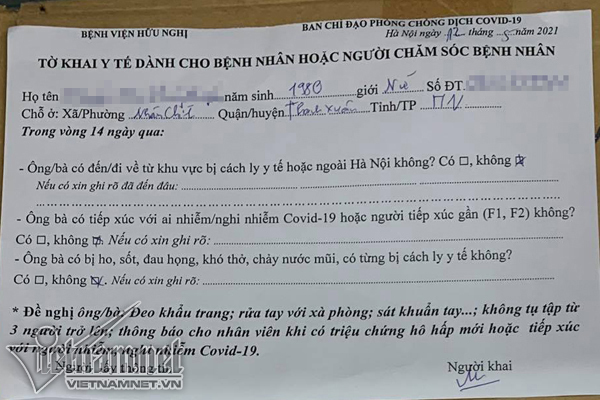 BỆNH VIỆN HỮU NGHỊ
BAN CHỈ ĐẠO PHÒNG CHỐNG DỊCH COVID-19
Hà Nội ngày 12 tháng 5 năm 2021
TỜ KHAI Y TẾ DÀNH CHO BỆNH NHÂN HOẶC NGƯỜI CHĂM SÓC BỆNH NHÂN
Họ tên năm sinh 1980 giới Nữ Số ĐT.
Chỗ ở: Xã/Phường Nhân Chính Quận/huyện Thanh Xuân Tỉnh/TP HN
Trong vòng 14 ngày qua:
- Ông/bà có đến/đi về từ khu vực bị cách ly y tế hoặc ngoài Hà Nội không? Có □, không ☑
Nếu có xin ghi rõ đã đến đâu:
- Ông bà có tiếp xúc với ai nhiễm/nghi nhiễm Covid-19 hoặc người tiếp xúc gần (F1, F2) không?
Có □, không ☑ Nếu có xin ghi rõ:
- Ông/bà có bị ho, sốt, đau họng, khó thở, chảy nước mũi, có từng bị cách ly y tế không?
Có □, không ☑. Nếu có xin ghi rõ:
* Đề nghị ông/bà: Đeo khẩu trang; rửa tay với xà phòng; sát khuẩn tay...; không tụ tập từ
3 người trở lên; thông báo cho nhân viên khi có triệu chứng hô hấp mới hoặc tiếp xúc
với người nhiễm, nghi nhiễm Covid-19.
Người lấy thông tin
Người khai
vietnamnet
VIETNAMNET.VN